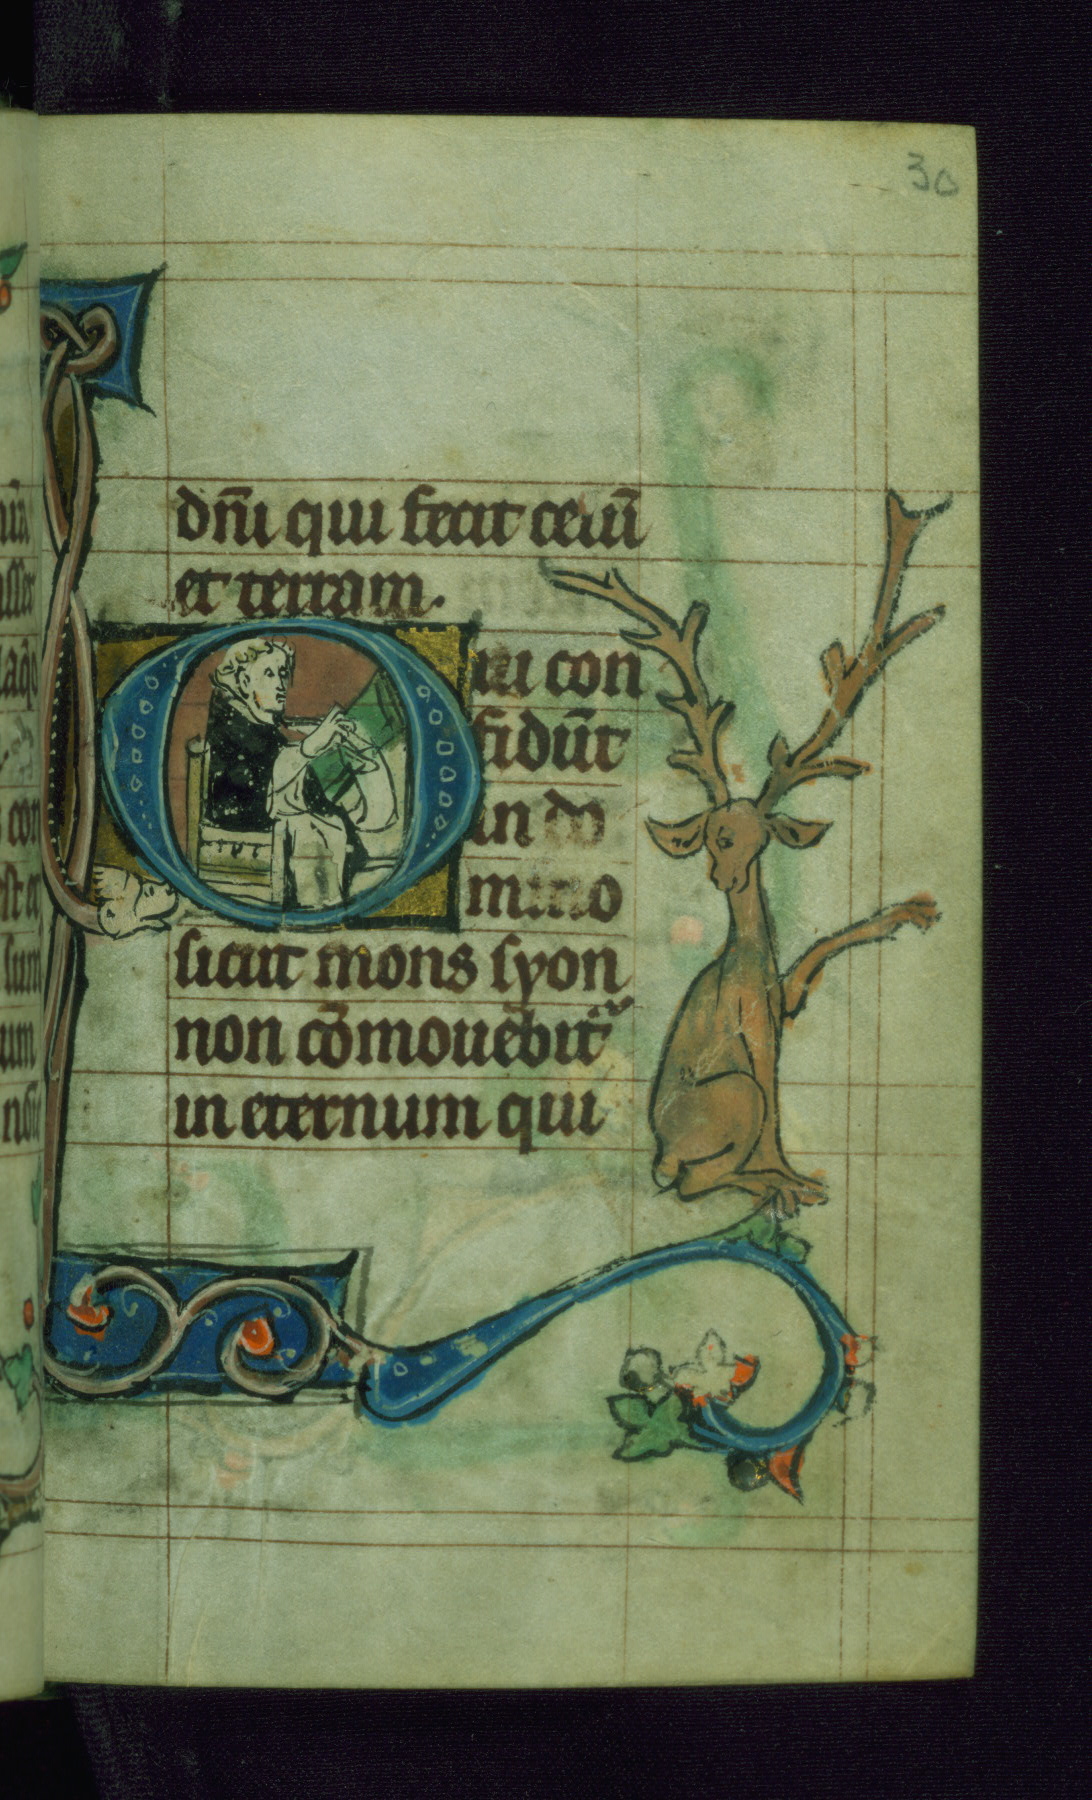 30
dn̄i qui fecit celū
et terram.
Qui con
fidūt
in do
mino
sicut mons syon
non cōmouebit᷑
in eternum qui